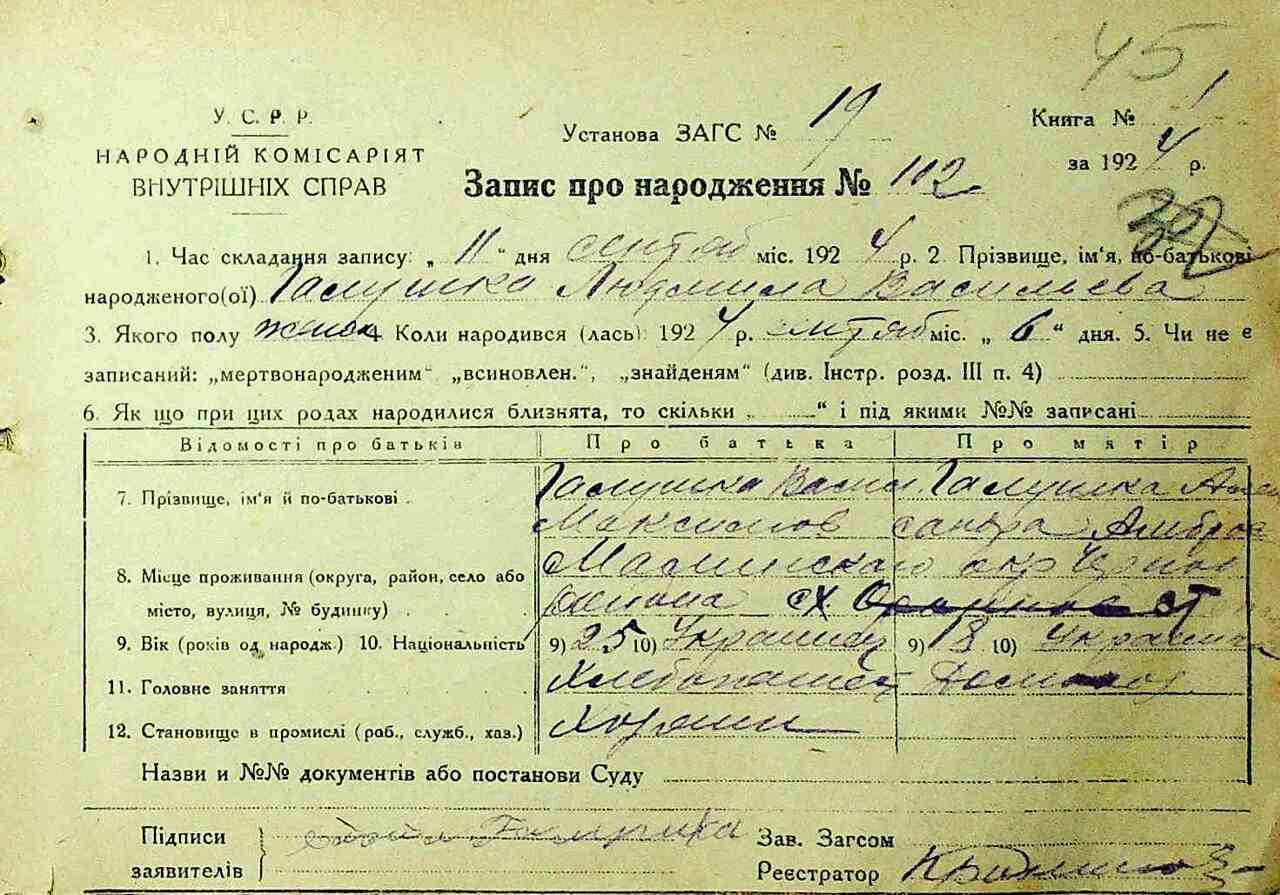 45
У. С. Р. Р.
НАРОДНІЙ КОМІСАРІЯТ
ВНУТРІШНІХ СПРАВ
Установа ЗАГС № 19
Книга № 1
за 1924 р.
Запис про народження № 112
1. Час складання запису: „ 11 “ дня сентяб міс. 1924 р. 2. Прізвище, ім'я, по-батькові
народженого(ої) Галушка Людмила Васильева
3. Якого полу женск 4. Коли народився (лась) 1924 р. сентяб міс. „ 6 “ дня. 5. Чи не є
записаний: „мертвонародженим“ „всиновлен.“, „знайденям“ (див. Інстр. розд. III п. 4)
6. Як що при цих родах народилися близнята, то скільки „ “ і під якими №№ записані
Відомості про батьків Про батька Про матір
7. Прізвище, ім'я й по-батькові Галушка Васил Галушка Алек
Максимов сандра Амброс
8. Місце проживання (округа, район, село або
місто, вулиця, № будинку) сх.
9. Вік (років од народж.) 10. Національність 9) 25 10) Украинец 9) 18 10) Украин
11. Головне заняття Хлебопашец
12. Становище в промислі (роб., служб., хаз.) Хозяин
Назви и №№ документів або постанови Суду
Підписи
заявителів
Зав. Загсом
Реєстратор